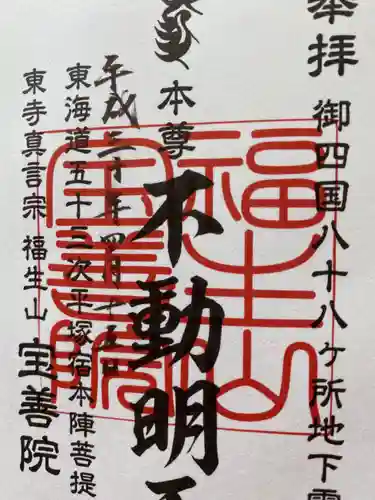 奉拝
御四国八十八ケ所地下霊
本尊
不動明王
平成三十年四月十五日
東海道五十三次平塚宿本陣菩提
東寺真言宗 福生山 宝善院
福生山
宝善院